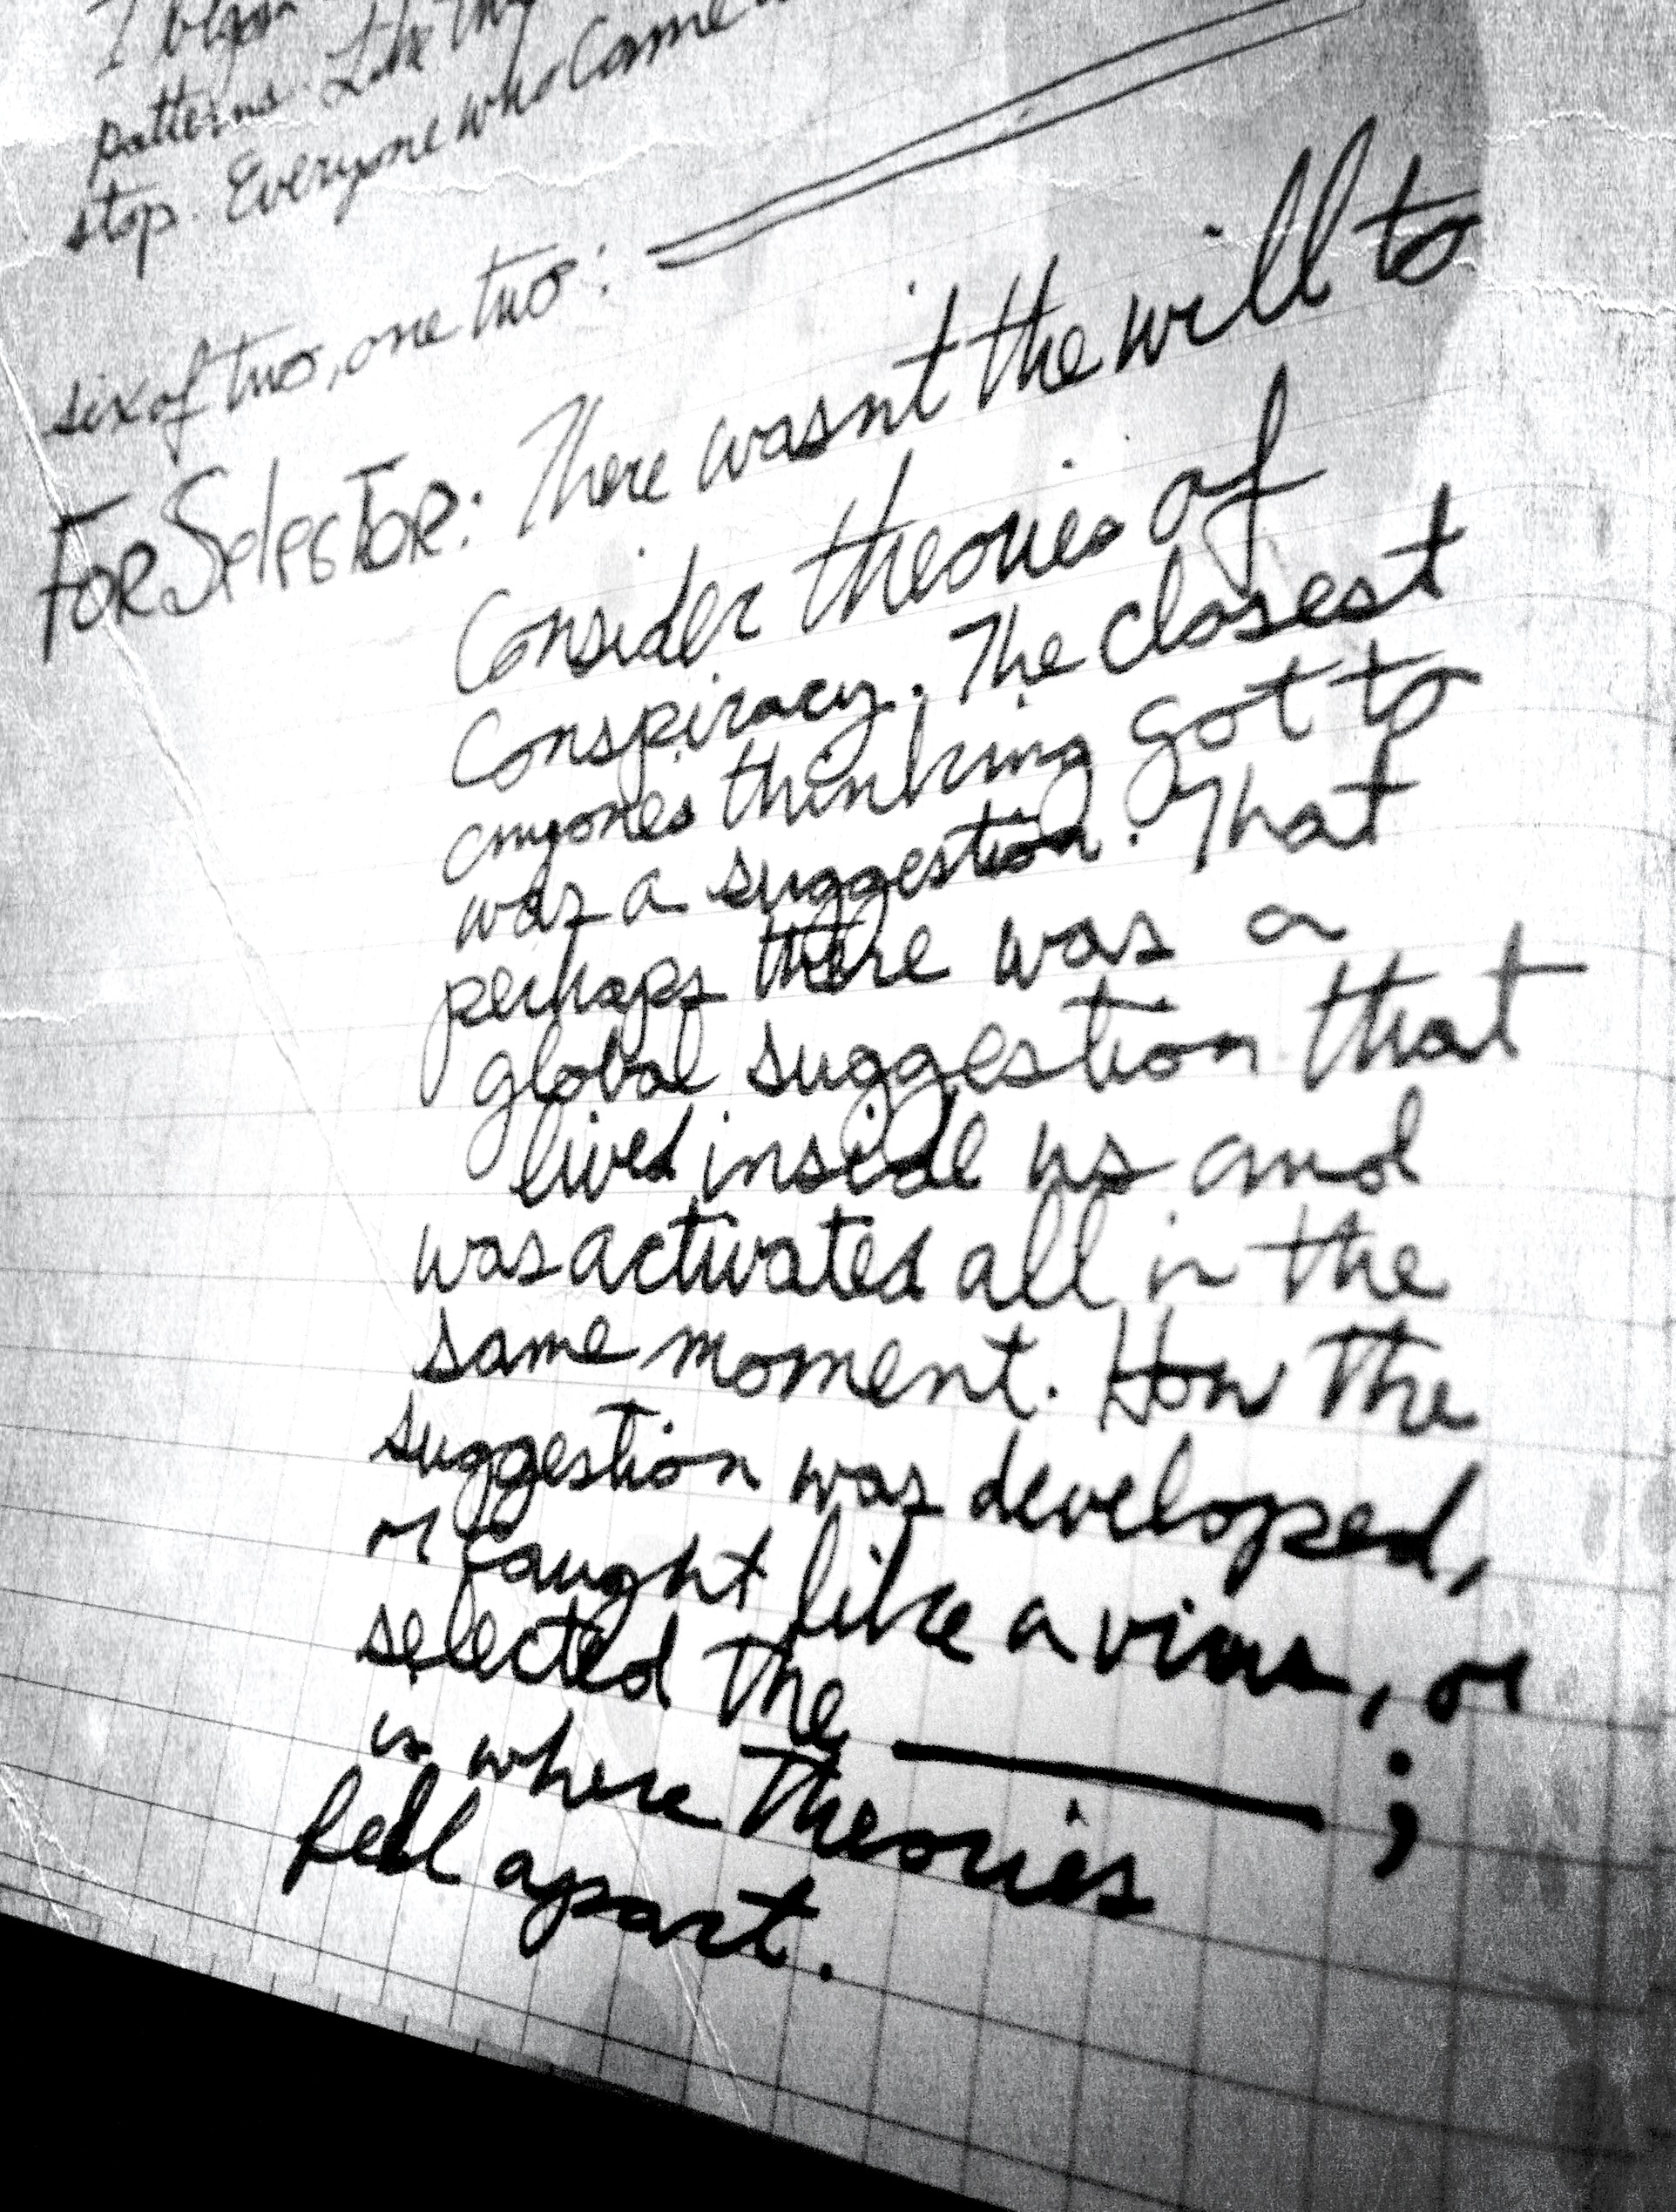 I began
patterns. Like they
stop. Everyone who came
six of two, one two:
FOR SelesTOR: There wasnt the will to
Consider theories of
Conspiracy. The closest
anyones thinking got to
was a suggestion. That
perhaps there was a
global suggestion that
lived inside us and
was activated all in the
same moment. How the
suggestion was developed,
or caught like a virus, or
selected the ______ ;
is where theories
fell apart.